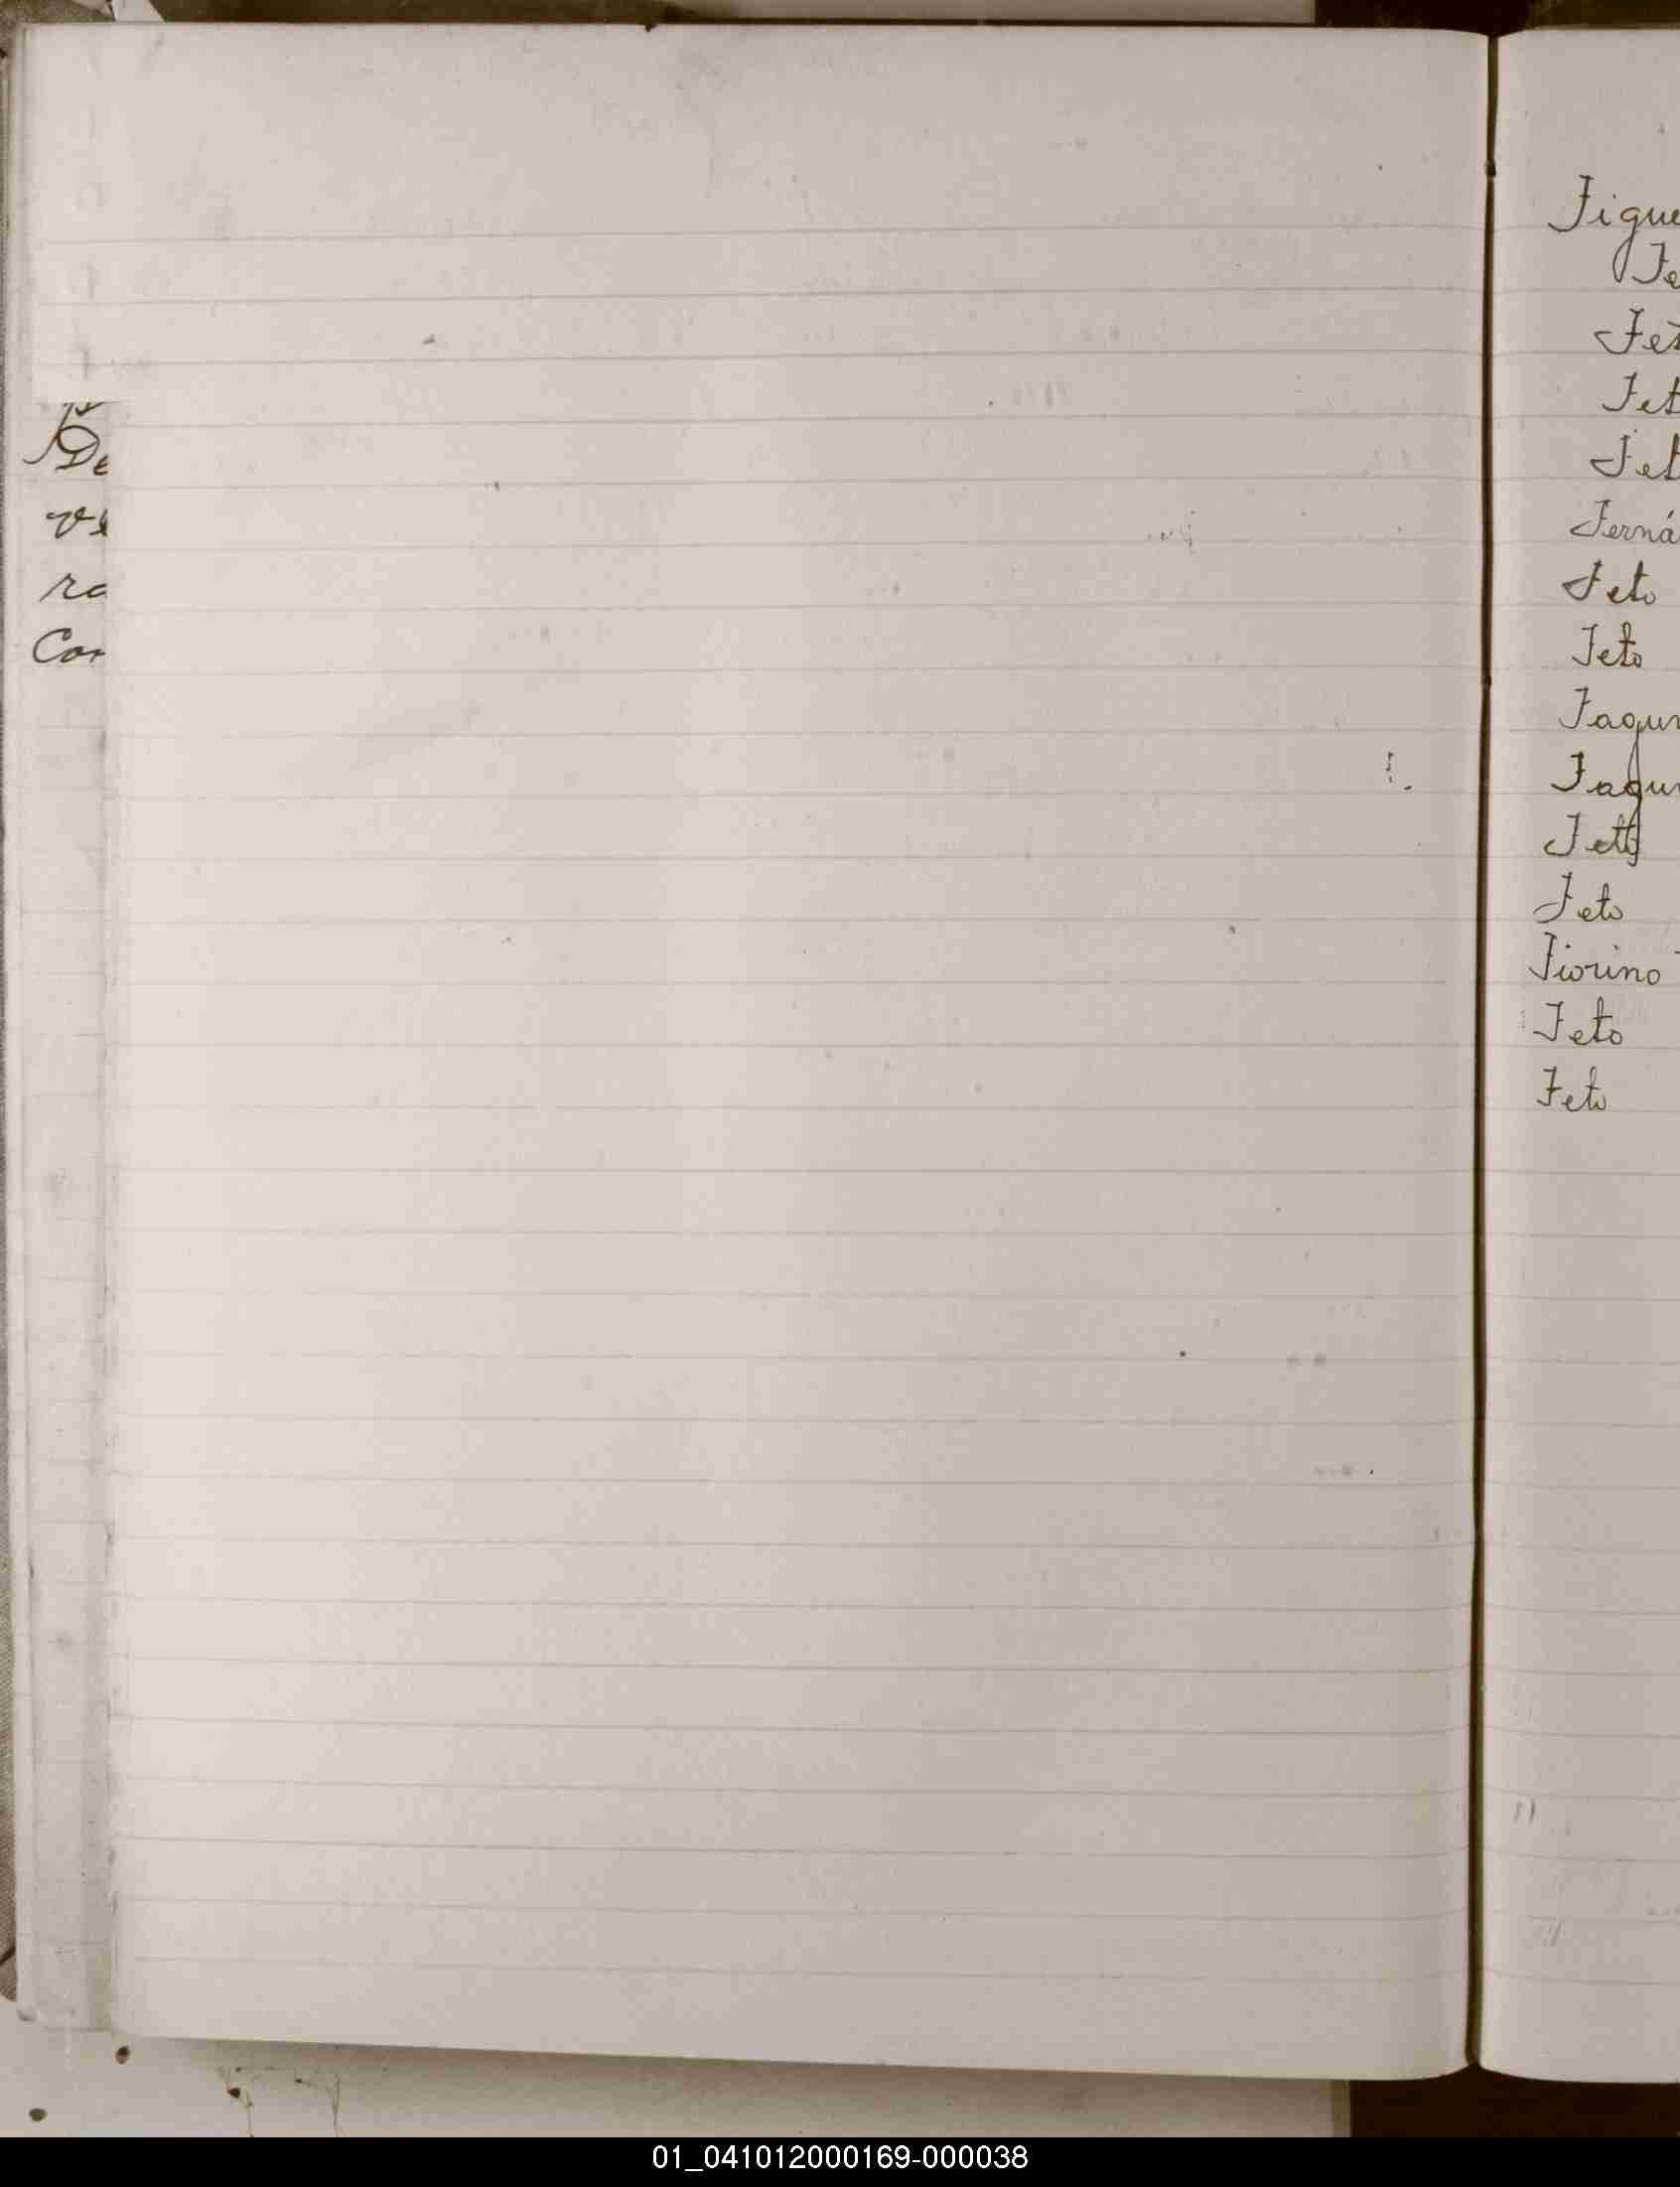 De
ra
Com
Figue
Fe
Fet
Fet
Fet
Ferná
Feto
Feto
Fagun
Fagun
Feto
Feto
Fiorino
Feto
Feto
01_041012000169-000038